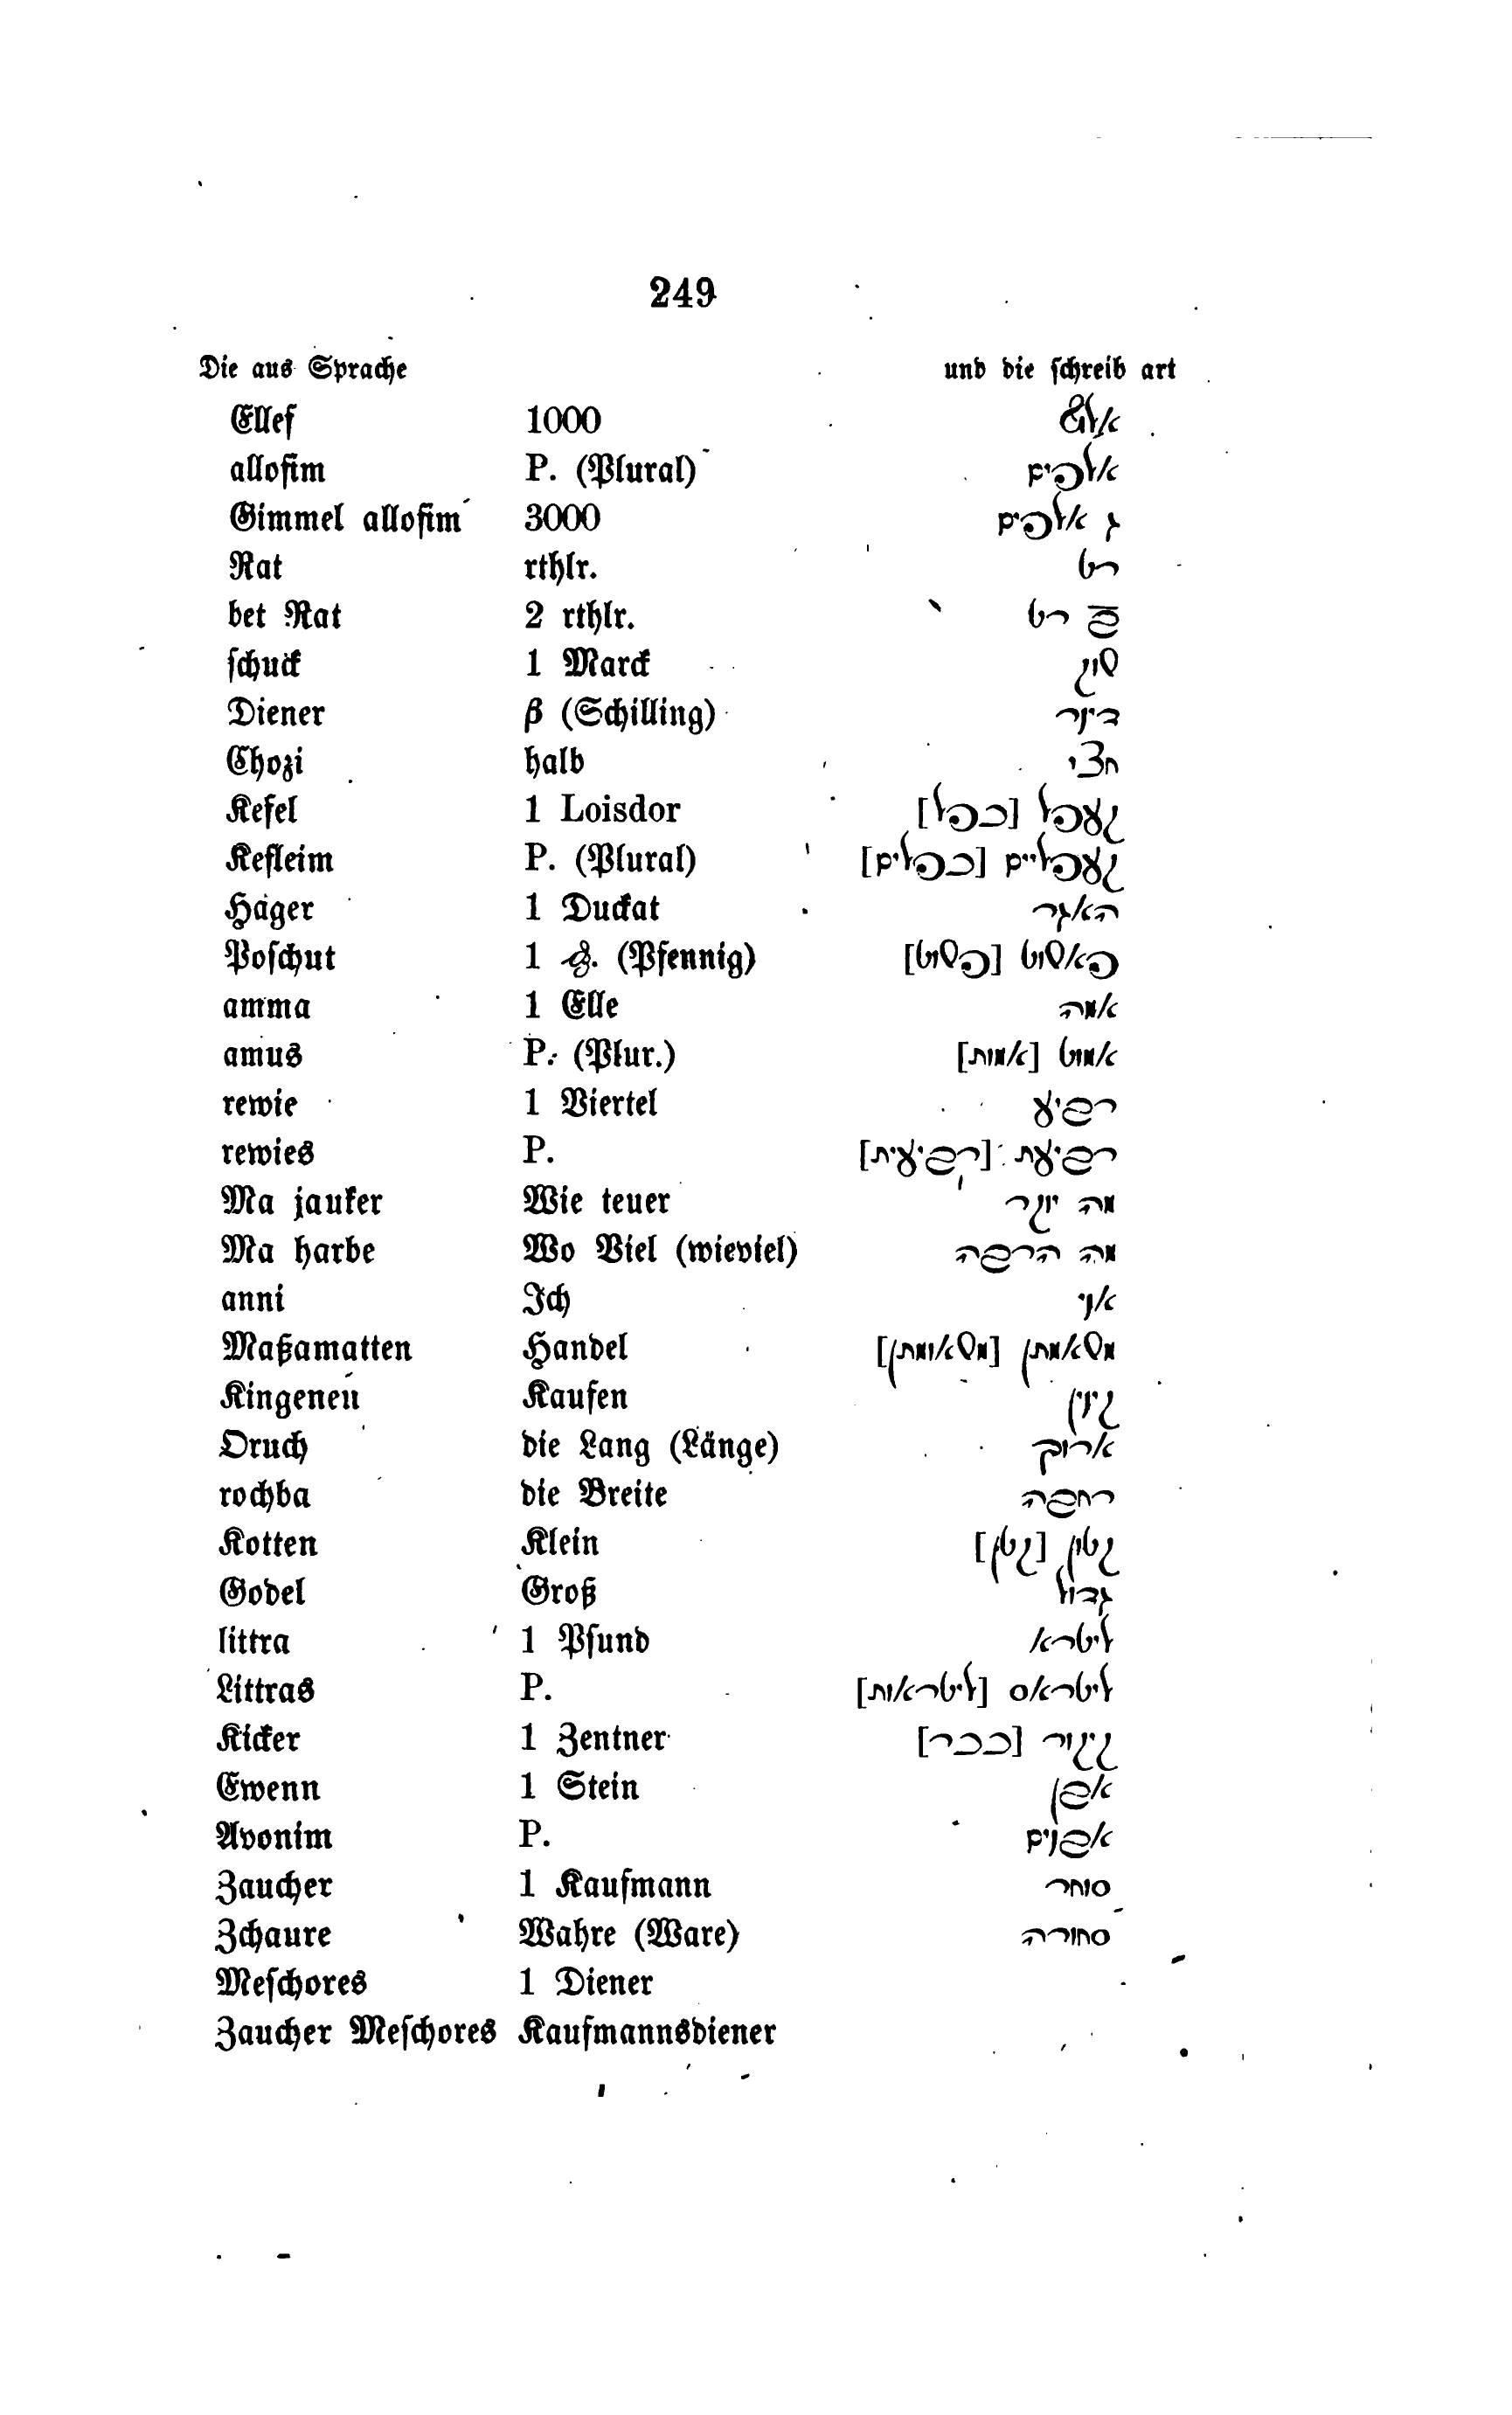 249
Die aus Sprache und die schreib art
Ellef 1000 אלף
allofim P. (Plural) אלפים
Gimmel allofim 3000 ג אלפים
Rat rthlr. רט
bet Rat 2 rthlr. ב רט
schuck 1 Marck שוק
Diener β (Schilling) דינר
Chozi halb חצי
Kefel 1 Loisdor קעפל [כפל]
Kefleim P. (Plural) קעפליים [כפלים]
Häger 1 Duckat האגר
Poschut 1 ₰. (Pfennig) פאשוט [פשוט]
amma 1 Elle אמה
amus P. (Plur.) אמוט [אמות]
rewie 1 Viertel רביע
rewies P. רביעת [רביעית]
Ma jauker Wie teuer מה יוקר
Ma harbe Wo Viel (wieviel) מה הרבה
anni Ich אני
Maßamatten Handel משאמתן [משאומתן]
Kingeneu Kaufen קינן
Oruch die Lang (Länge) ארוך
rochba die Breite רחבה
Kotten Klein קטון [קטן]
Godel Groß גדול
littra 1 Pfund ליטרא
Littras P. ליטראס [ליטראות]
Kicker 1 Zentner קקור [ככר]
Ewenn 1 Stein אבן
Avonim P. אבנים
Zaucher 1 Kaufmann סוחר
Zchaure Wahre (Ware) סחורה
Meschores 1 Diener
Zaucher Meschores Kaufmannsdiener